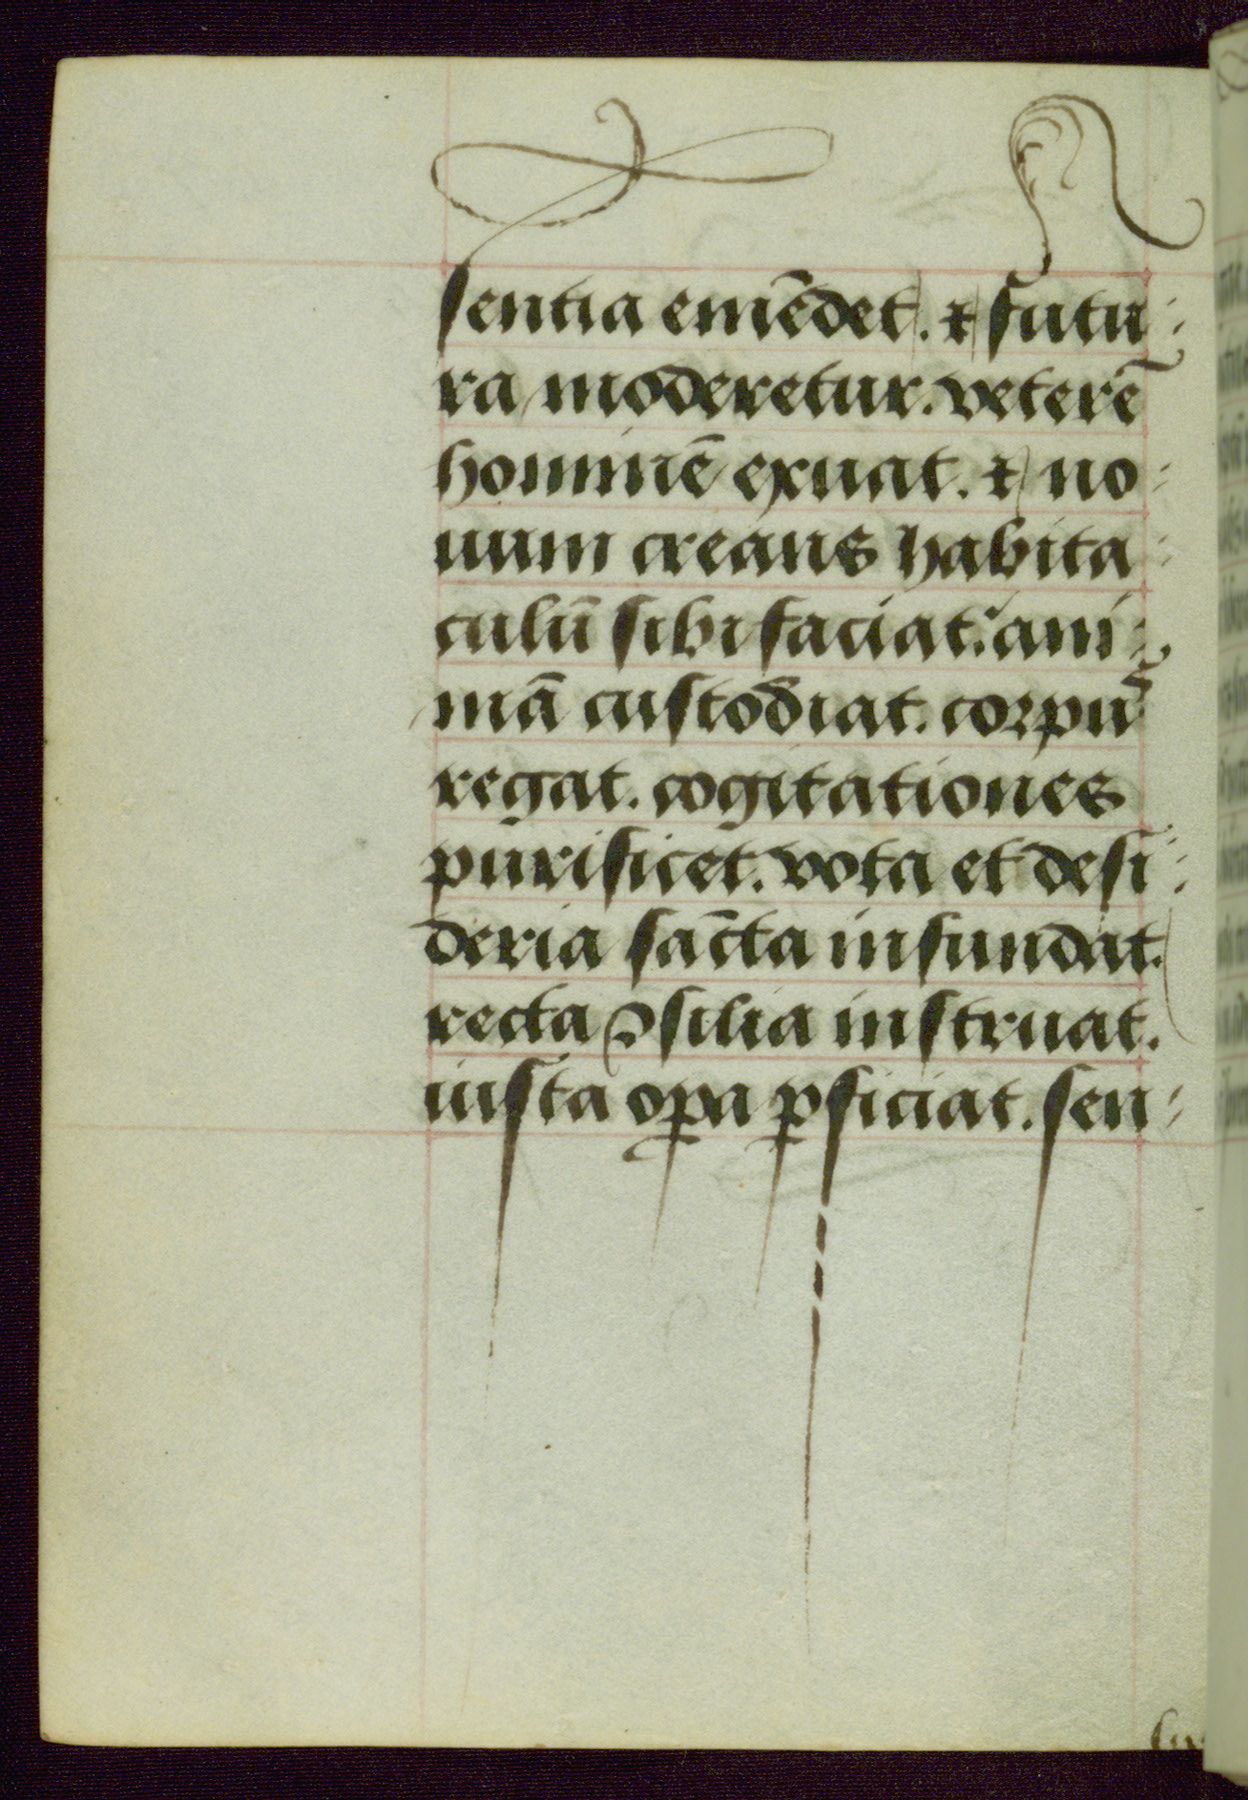 sentia emēdet. ⁊ futu-
ra moderetur. veterē
hominē exuat. ⁊ no-
uum creans habita-
culū sibi faciat: ani-
mā custodiat. corpuˢ
regat. cogitationes
purificet. vota et desi-
deria sācta infundat.
recta ꝯsilia instruat.
iusta oꝑa ꝑficiat. sen-